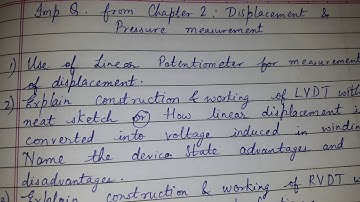 Imp Q. from Chapter 2 : Displacement &
Pressure measurement
1) Use of Linear Potentiometer for measurement
of displacement.
2) Explain construction & working of LVDT with
neat sketch or How linear displacement
converted into voltage induced in
Name the device. State advantages and
disadvantages.
Explain construction & working of RVDT